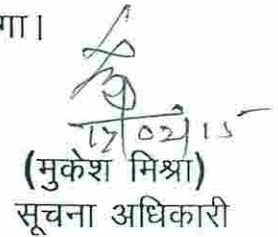 गा।
17/02/15
(मुकेश मिश्रा)
सूचना अधिकारी